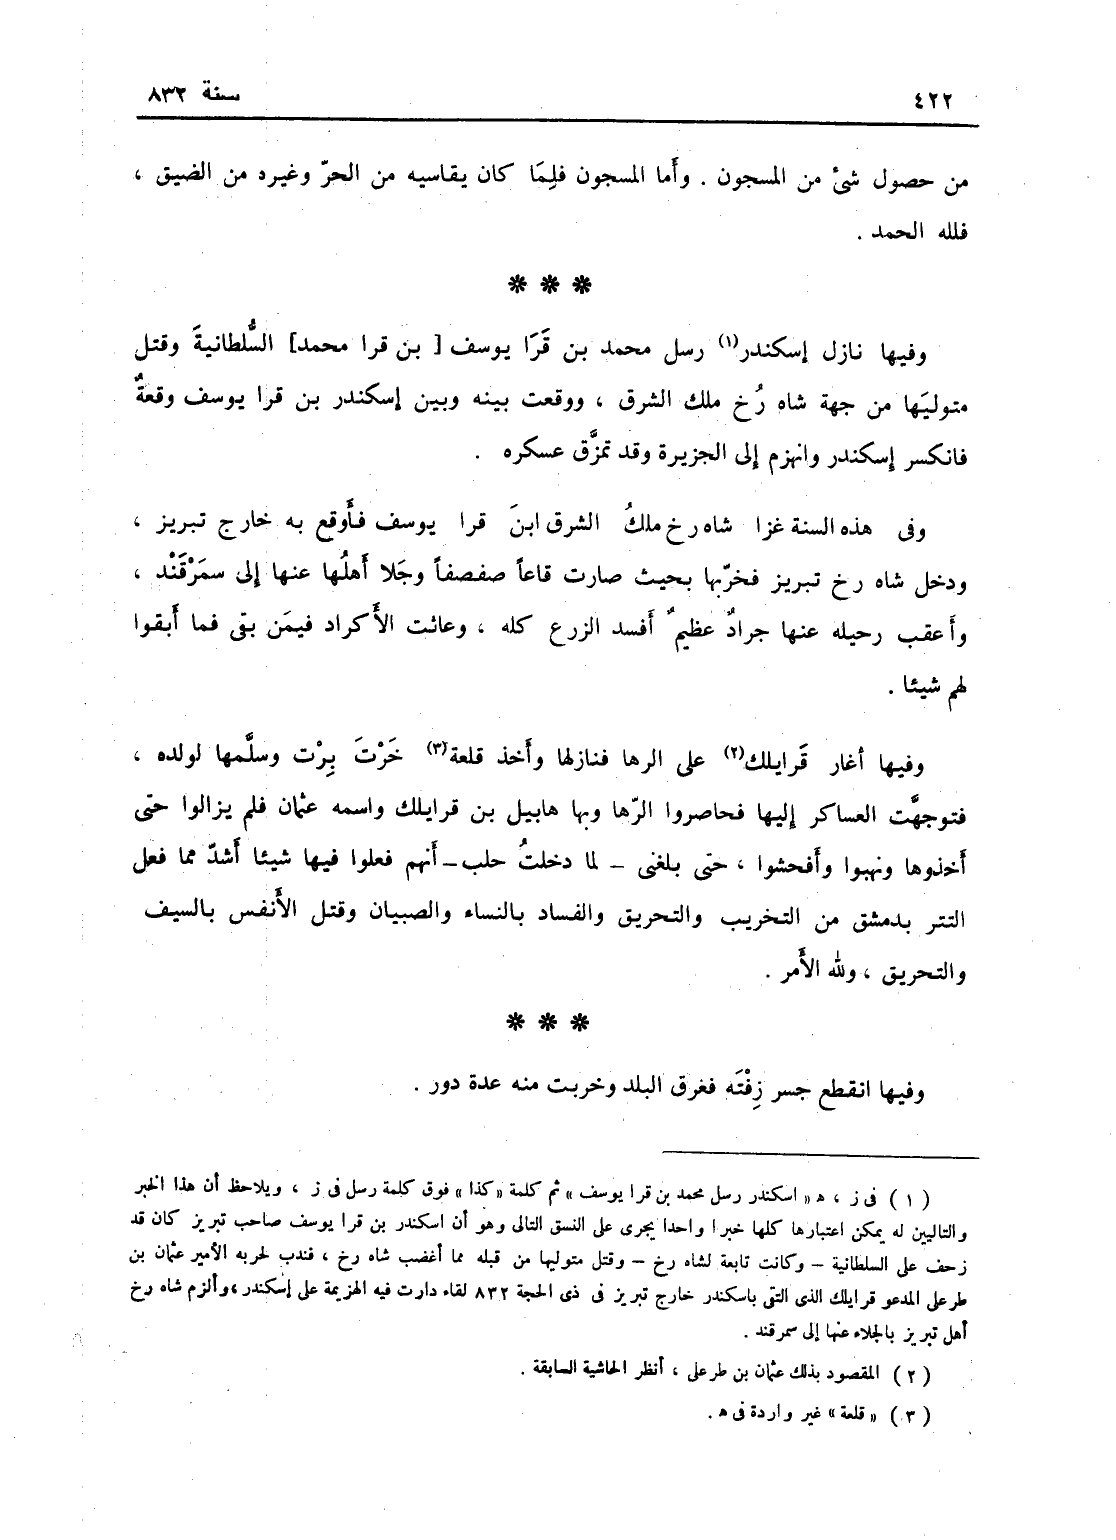 ٤٢٢
سنة ٨٣٢
من حصول شئ من المسجون . وأَما المسجون فلِمَا كان يقاسيه من الحرّ وغيره من الضيق ،
فلله الحمد .
* * *
وفيها نازل إسكندر(١) رسل محمد بن قَرَا يوسف [ بن قرا محمد] السُّلطانيةَ وقتل
متوليَها من جهة شاه رُخ ملك الشرق ، ووقعت بينه وبين إسكندر بن قرا يوسف وقعةٌ
فانكسر إسكندر وانهزم إلى الجزيرة وقد تمزَّق عسكره .
وفى هذه السنة غزا شاه رخ ملكُ الشرق ابنَ قرا يوسف فأَوقع به خارج تبريز ،
ودخل شاه رخ تبريز فخرّبها بحيث صارت قاعاً صفصفاً وجَلا أَهلُها عنها إلى سمَرْقَنْد ،
وأَعقب رحيله عنها جرادٌ عظيمٌ أَفسد الزرع كله ، وعاثت الأَكراد فيمَن بقى فما أَبقوا
لهم شيئا .
وفيها أغار قَرايلك(٢) على الرها فنازلها وأَخذ قلعة(٣) خَرْتَ بِرْت وسلَّمها لولده ،
فتوجهَّت العساكر إليها فحاصروا الرّها وبها هابيل بن قرايلك واسمه عثمان فلم يزالوا حتى
أَخذوها ونهبوا وأَفحشوا ، حتى بلغنى – لما دخلتُ حلب – أَنهم فعلوا فيها شيئا أَشدّ مما فعل
التتر بدمشق من التخريب والتحريق والفساد بالنساء والصبيان وقتل الأَنفس بالسيف
والتحريق ، ولله الأَمر .
* * *
وفيها انقطع جسر زِفْتَه فغرق البلد وخربت منه عدة دور .
( ١ ) فى ز ، ه « اسكندر رسل محمد بن قرا يوسف » ثم كلمة « كذا » فوق كلمة رسل فى ز ، ويلاحظ أن هذا الخبر
والتاليين له يمكن اعتبارها كلها خبرا واحدا يجرى على النسق التالى وهو أن اسكندر بن قرا يوسف صاحب تبريز كان قد
زحف على السلطانية – وكانت تابعة لشاه رخ – وقتل متوليها من قبله مما أغضب شاه رخ ، فندب لحربه الأمير عثمان بن
طرعلى المدعو قرايلك الذى التقى باسكندر خارج تبريز فى ذى الحجة ٨٣٢ لقاء دارت فيه الهزيمة على إسكندر، وألزم شاه رخ
أهل تبريز بالجلاء عنها إلى سمرقند .
( ٢ ) المقصود بذلك عثمان بن طرعلى ، أنظر الحاشية السابقة .
( ٣ ) « قلعة » غير واردة فى ه .